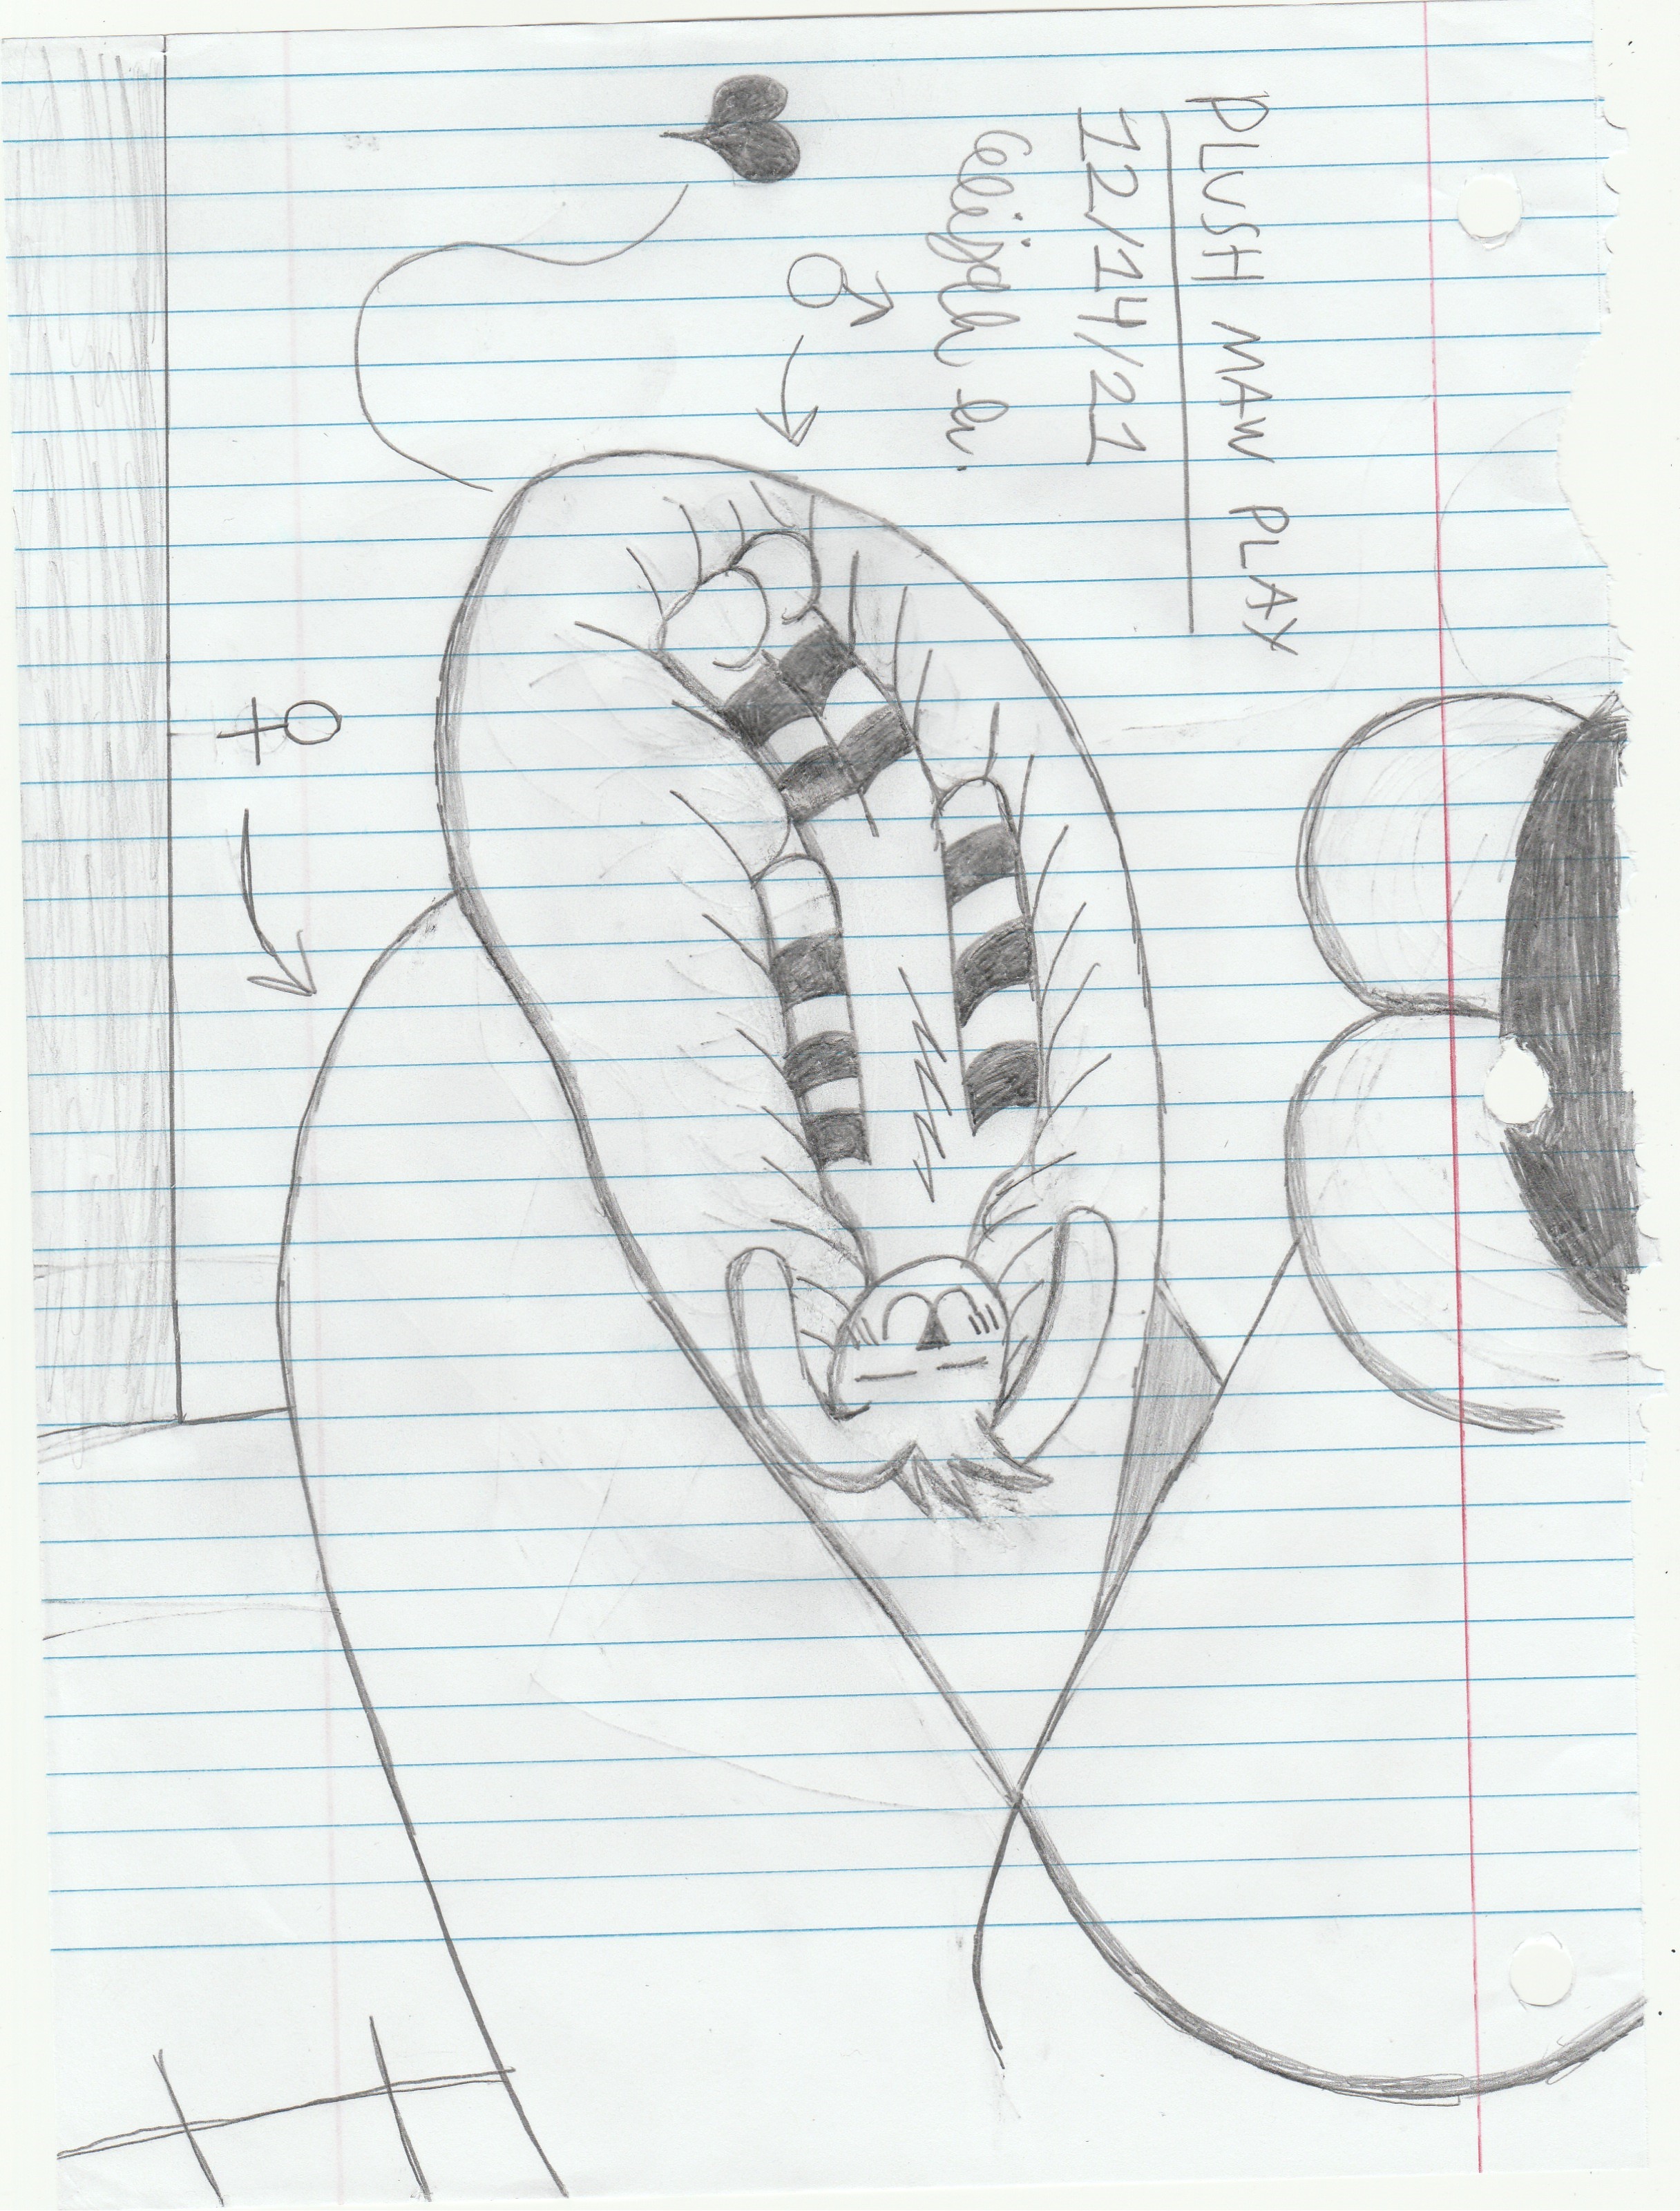 PLUSH MAW PLAY
12/14/21
Elijah h.
♂
♀